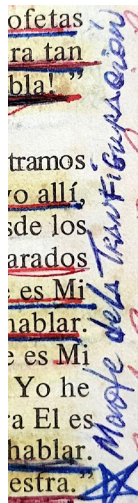 ofetas
ra tan
bla!”
tramos
o allí,
sde los
arados
es Mi
hablar.
e es Mi
Yo he
ra El es
hablar.
estra.”
de la Transfiguración